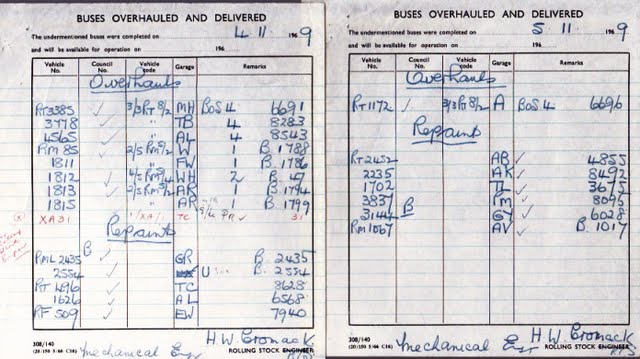 BUSES OVERHAULED AND DELIVERED
The undermentioned buses were completed on 4.11 1969
and will be available for operation on 196
Vehicle No. Council No. Vehicle code Garage No. Remarks
Overhauls
RT3385 ✓ 3/3RT8/2 MH BOS 4 6691
3778 ✓ " TB 4 8283
4565 ✓ " AL 4 8543
RM 85 ✓ W 1 B. 1788
1811 " FW 1 B. 1786
1812 ✓ WH 2 B. 47
1813 ✓ AK 1 B. 1794
1815 AR 1 B. 1799
XA31 TC 31
Repaints
RML 2435 B ✓ GR B. 2435
2554 ✓ U B. 2554
RT 4696 ✓ TC 8628
1626 ✓ AL 6568
RF 509 ✓ EW 7940
308/140
(20/150 5/66 C16)
Mechanical Eng
H.W. Cromack
ROLLING STOCK ENGINEER
BUSES OVERHAULED AND DELIVERED
The undermentioned buses were completed on 5.11 1969
and will be available for operation on 196
Vehicle No. Council No. Vehicle code Garage No. Remarks
Overhauls
RT1172 ✓ 3/3RT8/2 A BOS 4 6696
Repaints
RT2452 AB ✓ 4855
2235 AK ✓ 8492
1702 TL ✓ 3675
3837 PM ✓ 8095
3144 B GY ✓ 6028
RM1067 AV ✓ B. 1017
308/140
(20/150 5/66 C16)
Mechanical Eng
H.W. Cromack
ROLLING STOCK ENGINEER